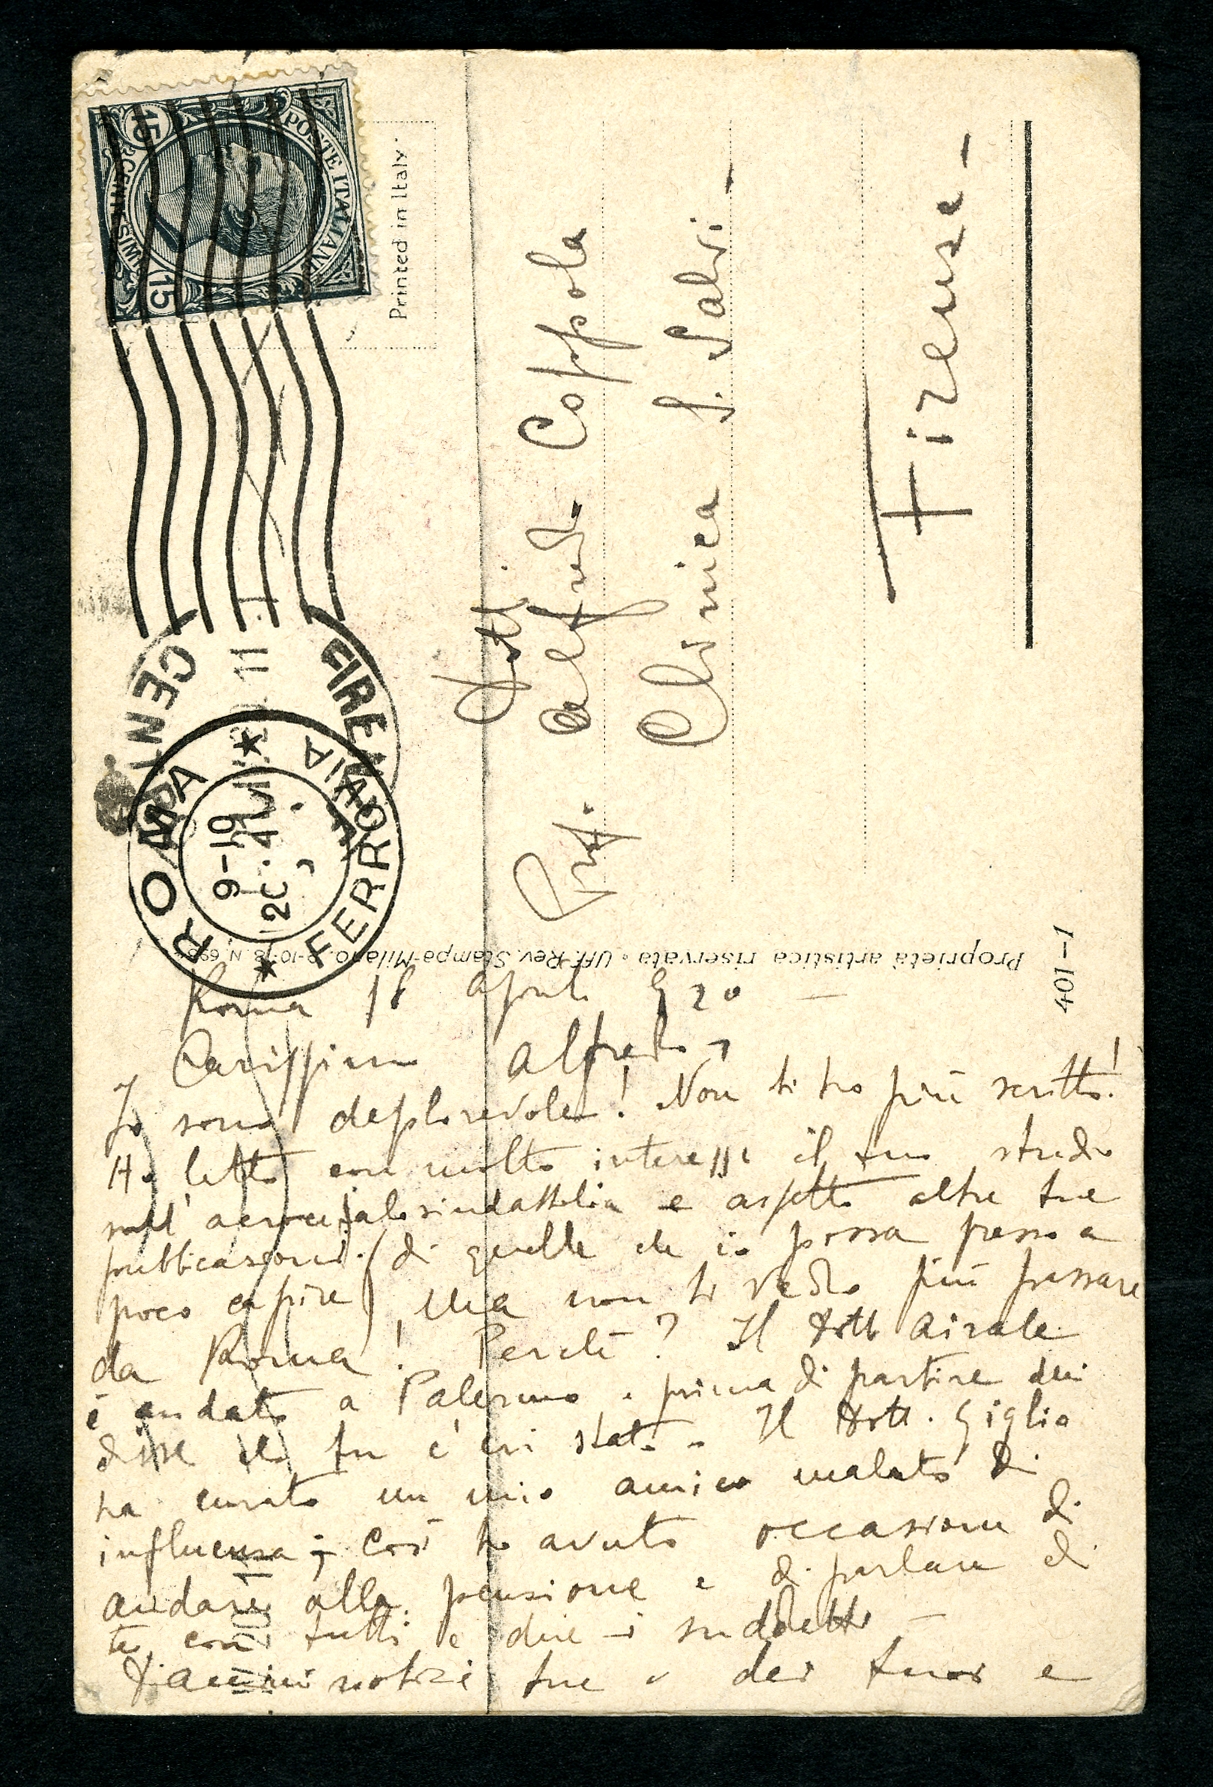 POSTE ITALIANE
15 CENTESIMI 15
Printed in Italy
ROMA
FERROVIA
9-19
20.4
FIRE
CEN
11
Dott.
Prof. Alfredo Coppola
Clinica S. Salvi -
Firenze -
Proprietà artistica riservata - Uff. Rev. Stampa-Milano
401-1
Roma 18 Aprile 920 —
Carissimo Alfredo,
Io sono deplorevole! Non ti ho più scritto!
Ho letto con molto interesse il tuo studio
sull' e aspetto altre tue
pubblicazioni (di quelle che io possa presso a
poco capire) Ma non ti vedo più passare
da Roma! Perché? Il Dott Airale
è andato a Palermo e prima di partire mi
disse che tu c'eri stato. Il Dott. Giglio
ha curato un mio amico malato di
influenza; così ho avuto occasione di
andare alla pensione e di parlare di
te con tutti e due i suddetti —
Dammi notizie tue e dei tuoi e